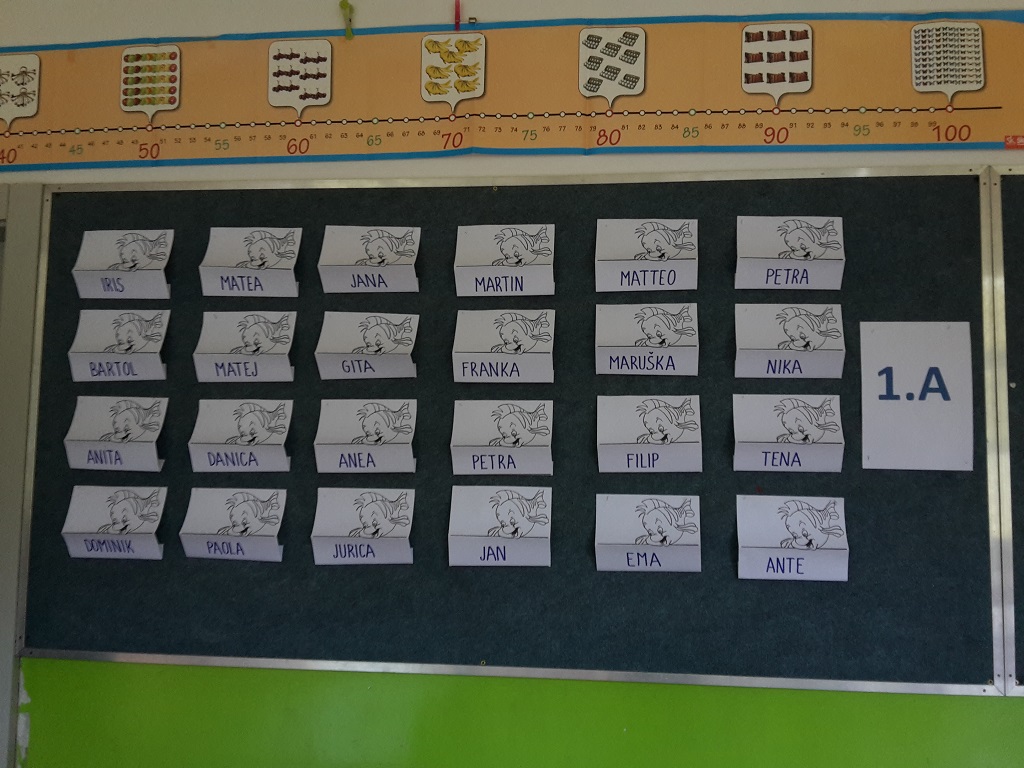 40 45 50 55 60 65 70 75 80 85 90 95 100
IRIS MATEA JANA MARTIN MATTEO PETRA
BARTOL MATEJ GITA FRANKA MARUŠKA NIKA
1.A
ANITA DANICA ANEA PETRA FILIP TENA
DOMINIK PAOLA JURICA JAN EMA ANTE